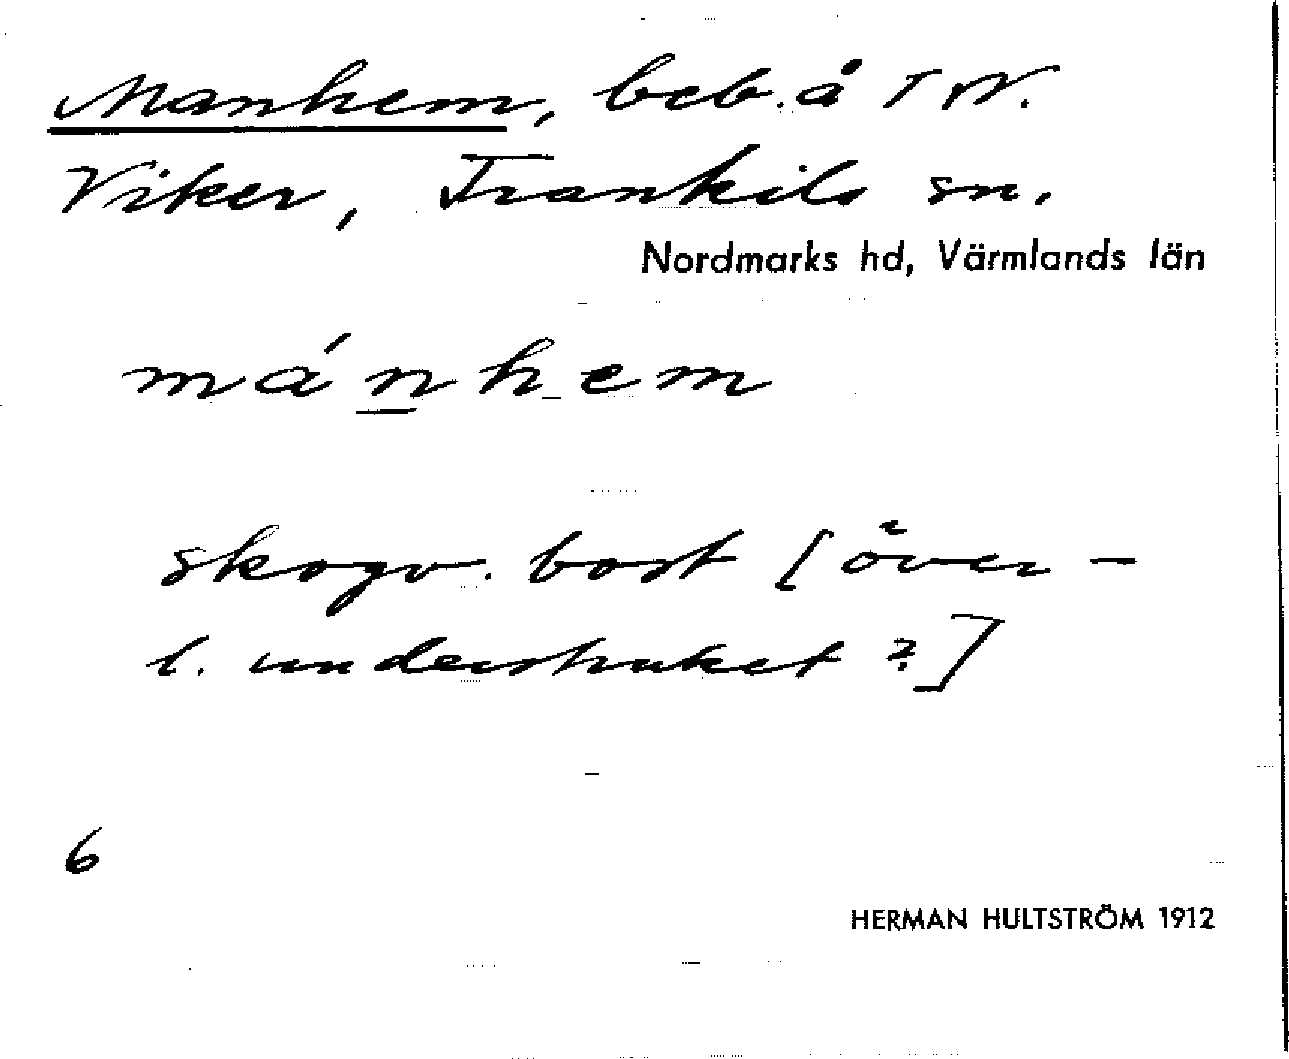 Manhem, beb. å 1 N.
Viker, Trankils sn.
Nordmarks hd, Värmlands län
mánhem
skogv. bost [över-
l. understruket?]
6
HERMAN HULTSTRÖM 1912